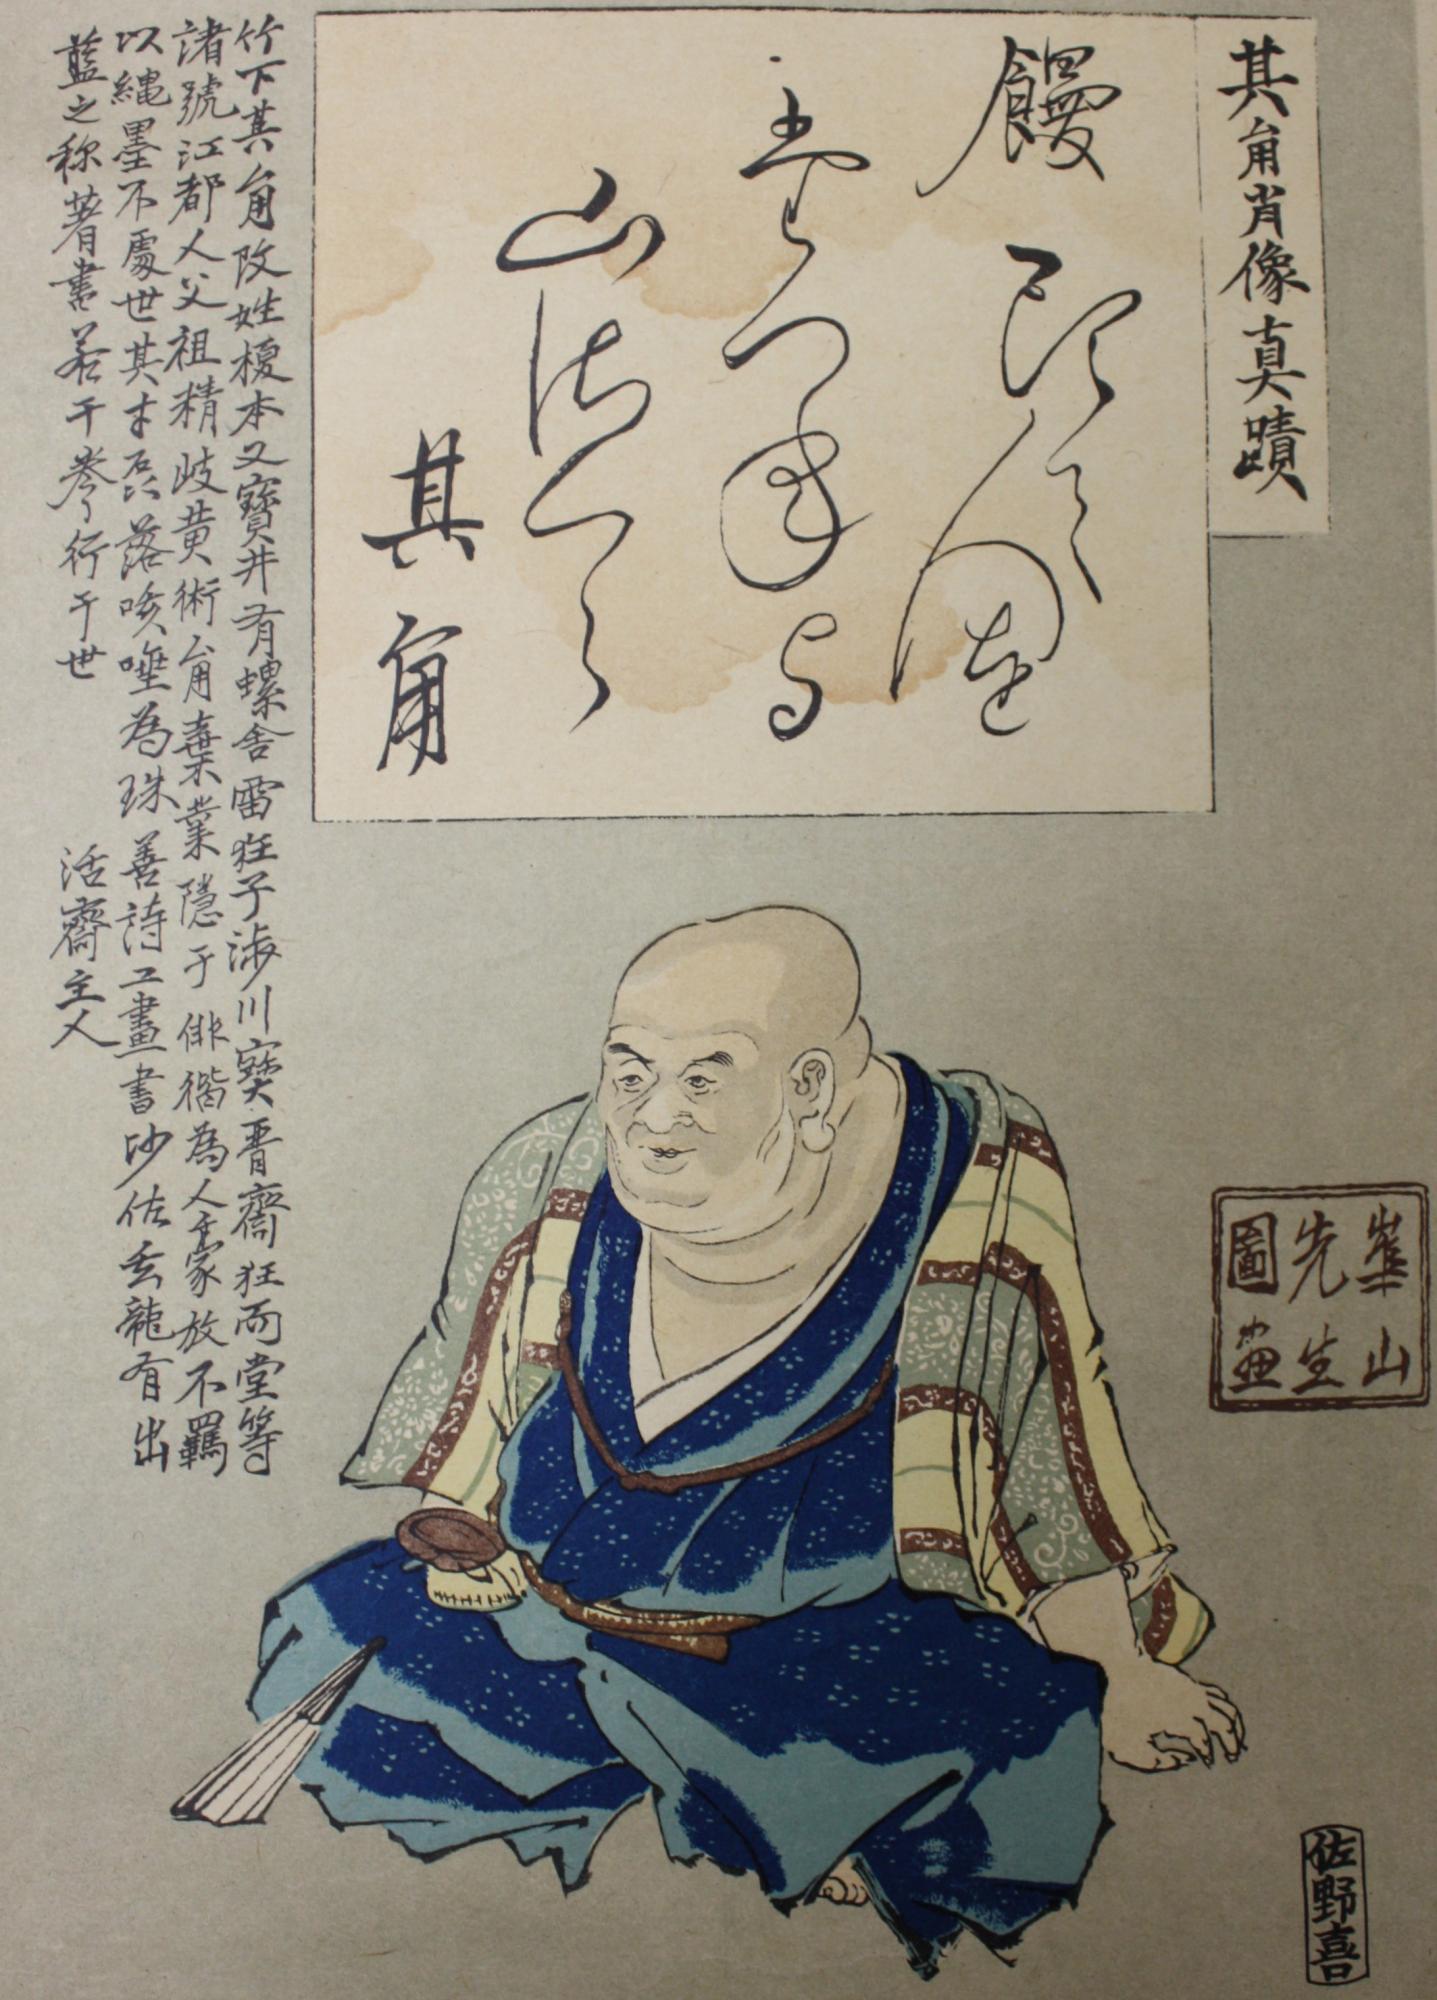 其角肖像真蹟
饅頭て人を
たつねよ
山さくら
其角
竹下其角改姓榎本又寶井有螺舎雷狂子渉川寶晋齋狂而堂等
諸號江都人父祖精岐黄術角棄業隠于俳諧為人豪放不羈
以縄墨不處世其才磊落咳唾為珠善詩工畫書妙佐玄龍有出
藍之称著書若干巻行于世
活齋主人
崋山
先生
圖画
佐野喜